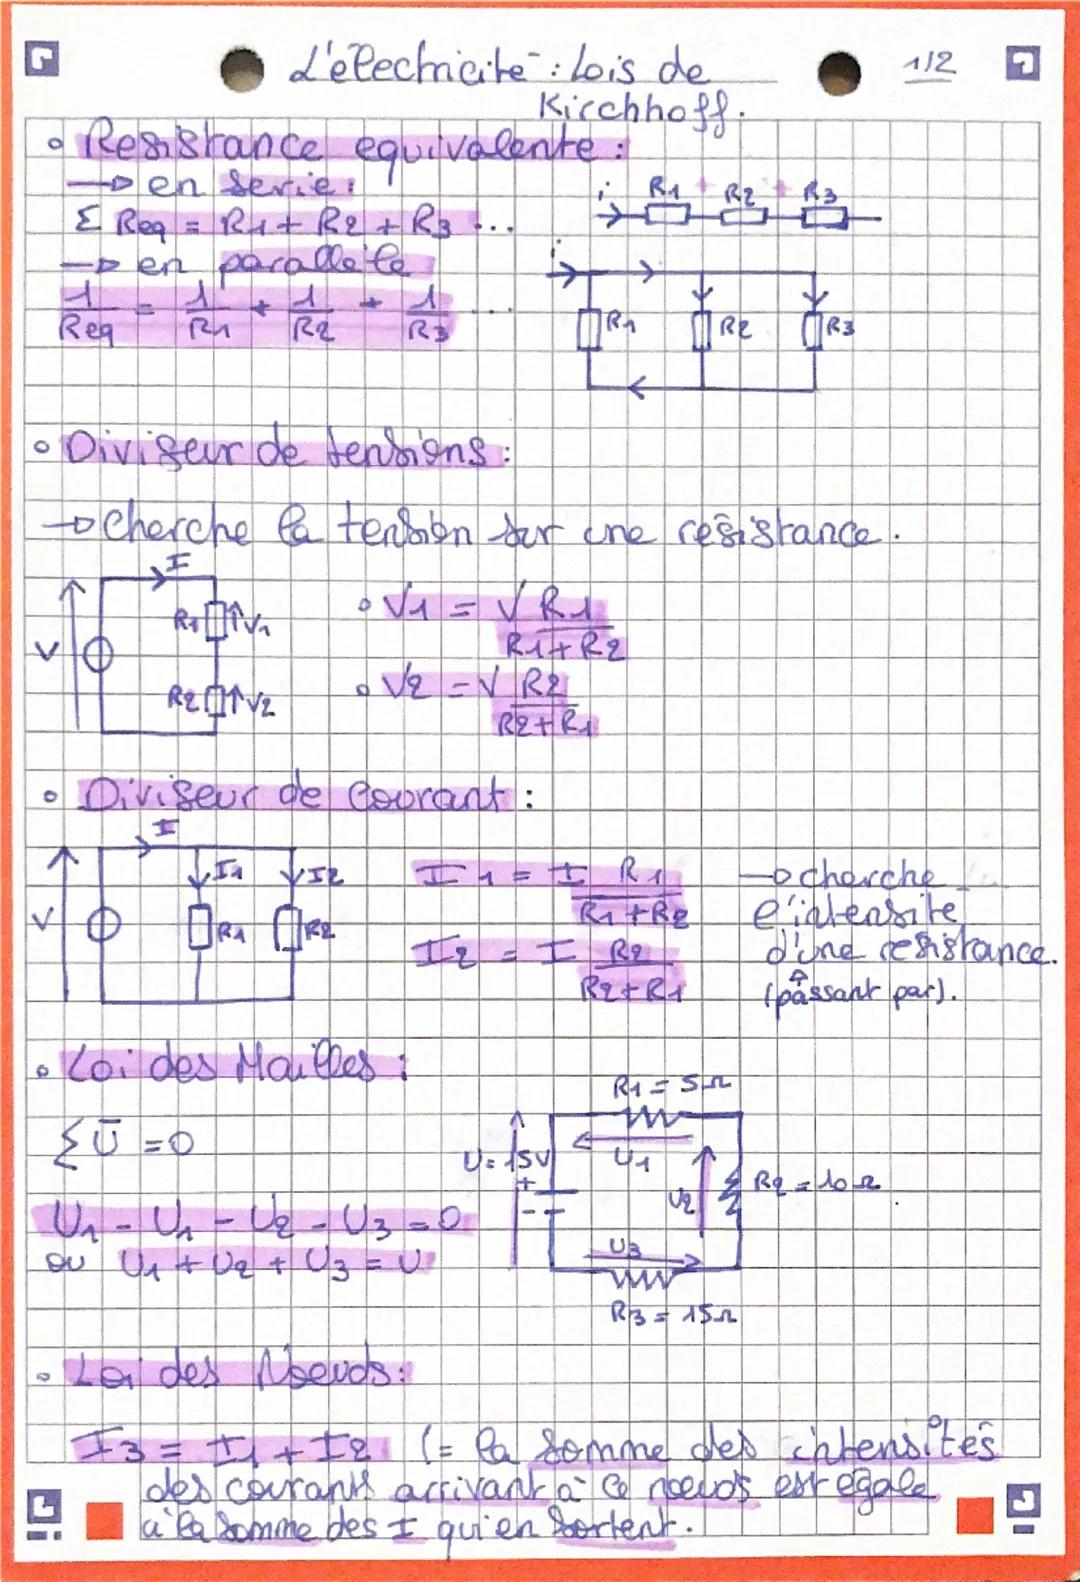 L'électricité : Lois de Kirchhoff.
1/2
• Resistance equivalente :
→ en serie :
Σ Req = R1 + R2 + R3 ...
i R1 + R2 + R3
→ en parallèle
1/Req = 1/R1 + 1/R2 + 1/R3 ...
i R1 R2 R3
• Diviseur de tensions :
→ cherche la tension sur une résistance.
I
V R1 V1
R2 V2
• V1 = V R1/(R1 + R2)
• V2 = V R2/(R2 + R1)
• Diviseur de courant :
I
V I1 I2
R1 R2
I1 = I R1/(R1 + R2)
I2 = I R2/(R2 + R1)
→ cherche
l'intensité
d'une resistance.
(passant par).
• Loi des Mailles :
Σ Ū = 0
U1 - U1 - U2 - U3 = 0
ou U1 + U2 + U3 = U
R1 = 5Ω
U = 15V
+
-
U1
U2
R2 = 10Ω
U3
R3 = 15Ω
• Loi des Noeuds :
I3 = I1 + I2 (= la somme des intensités
des courants arrivant à ce noeuds est égale
à la somme des I qui en sortent.